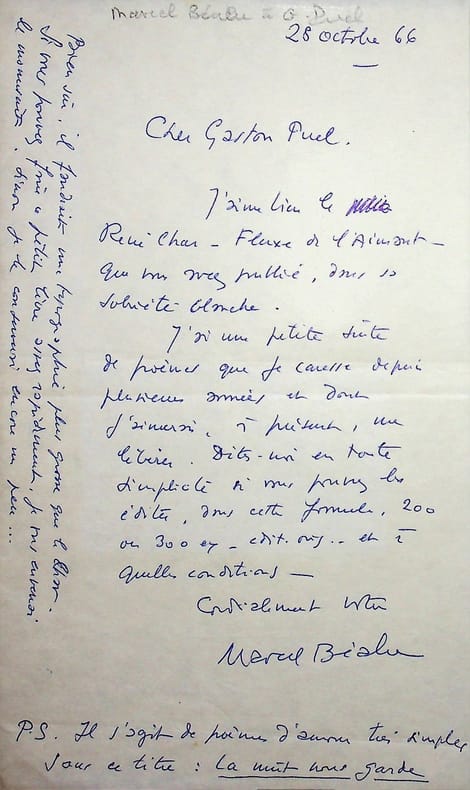 Marcel Béalu à G. Puel
28 octobre 66
Cher Gaston Puel.
J'aime bien le petit
René Char – Fluxe de l'Aimant –
que vous avez publié, dans sa
sobriété blanche.
J'ai une petite suite
de poèmes que je caresse depuis
plusieurs années et dont
j'aimerai, à présent, me
libérer. Dites-moi en toute
simplicité si vous pouvez les
éditer, dans cette formule, 200
ou 300 ex – édit. orig.. – et à
quelles conditions –
Cordialement votre
Marcel Béalu
P.S. Il s'agit de poèmes d'amour très simples
sous ce titre : La nuit nous garde
Bien sûr, il faudrait une typographie plus grosse que le Char.
Si vous pouvez faire ce petit livre assez rapidement, je vous enverrai
le manuscrit. Sinon je le conserverai encore un peu ...